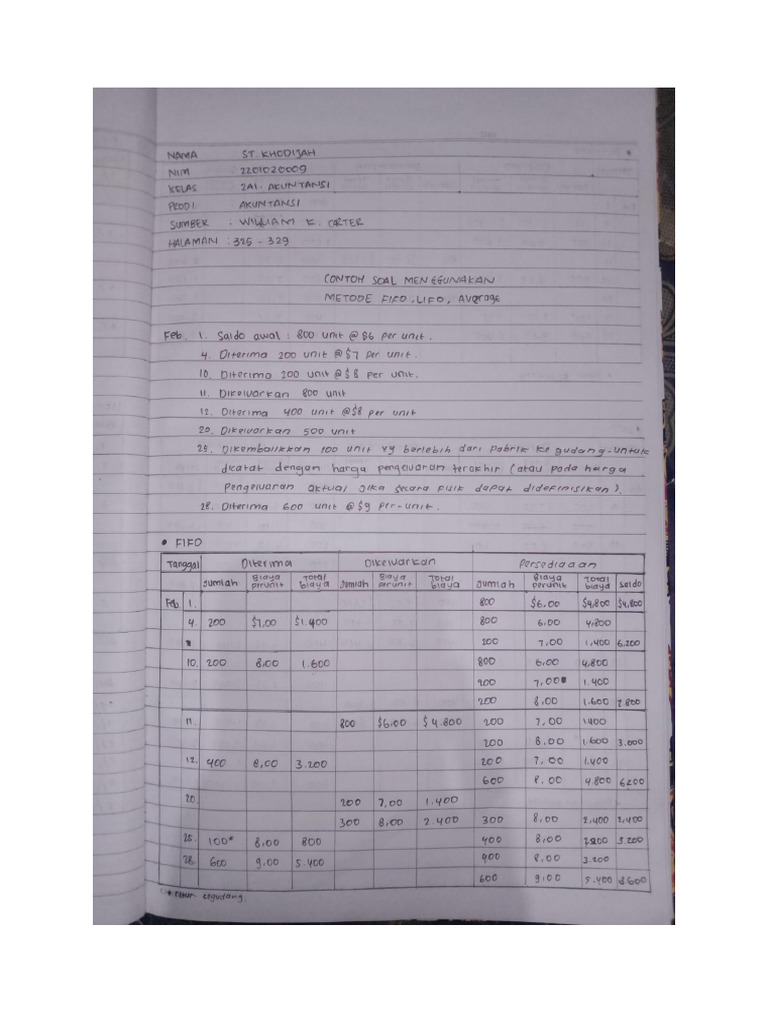 NAMA ST. KHODIJAH
NIM : 2201020009
KELAS 2A1. AKUNTANSI
PRODI : AKUNTANSI
SUMBER : WILLIAM K. CARTER
HALAMAN : 325 - 329
CONTOH SOAL MENGGUNAKAN
METODE FIFO, LIFO, Average
Feb. 1. Saldo awal : 800 unit @ $6 per unit.
4. Diterima 200 unit @ $7 per unit.
10. Diterima 200 unit @ $8 per unit.
11. Dikeluarkan 800 unit
12. Diterima 400 unit @ $8 per unit
20. Dikeluarkan 500 unit
25. Dikembalikkan 100 unit yg berlebih dari pabrik ke gudang - untuk
dicatat dengan harga pengeluaran terakhir (atau pada harga
Pengeluaran aktual jika secara fisik dapat didefinisikan).
28. Diterima 600 unit @ $9 per-unit.
• FIFO
Tanggal Diterima Dikeluarkan Persediaaan
Jumlah Biaya perunit Total biaya Jumlah Biaya perunit Total biaya Jumlah Biaya perunit Total biaya Saldo
Feb. 1. 800 $6.00 $4,800 $4,800
4. 200 $7,00 $1.400 800 6,00 4.800
200 7,00 1.400 6.200
10. 200 8,00 1.600 800 6,00 4.800
200 7,00 1.400
200 8,00 1.600 7.800
11. 800 $6.00 $4.800 200 7,00 1.400
200 8.00 1.600 3.000
12. 400 8,00 3.200 200 7,00 1.400
600 8,00 4.800 6200
20. 200 7,00 1.400
300 8,00 2.400 300 8,00 2,400 2,400
25. 100* 8,00 800 400 8,00 3.200
28. 600 9,00 5.400 400 8,00 3.200
600 9,00 5.400 8600
* retur kegudang.